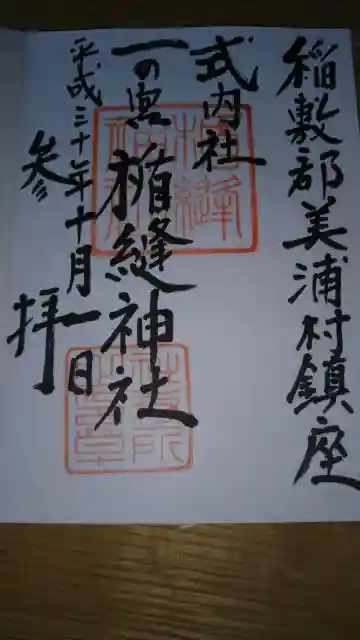 稲敷郡美浦村鎮座
式内社
一の宮楯縫神社
平成三十年十月一日
参拝